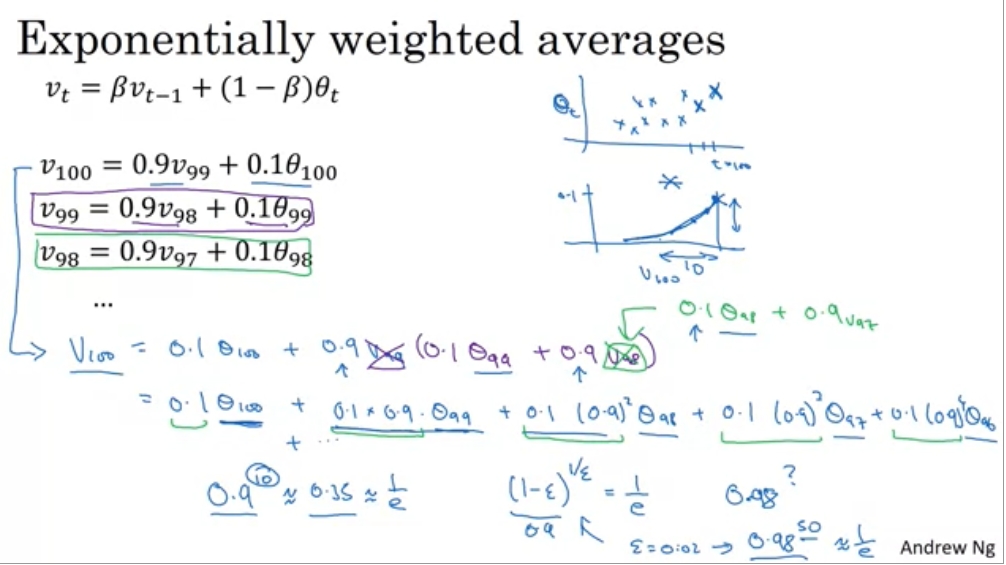 Exponentially weighted averages
v_t = βv_{t−1} + (1 − β)θ_t
θ_t
t=100
v_100 = 0.9v_99 + 0.1θ_100
v_99 = 0.9v_98 + 0.1θ_99
v_98 = 0.9v_97 + 0.1θ_98
...
0.1
V_100
10
0.1 θ_98 + 0.9 v_97
V_100 = 0.1 θ_100 + 0.9 v_99 (0.1 θ_99 + 0.9 v_98)
= 0.1 θ_100 + 0.1 * 0.9 · θ_99 + 0.1 (0.9)² θ_98 + 0.1 (0.9)³ θ_97 + 0.1 (0.9)⁴ θ_96
+ ...
0.9^10 ≈ 0.35 ≈ 1/e
(1-ε)^{1/ε} = 1/e
0.98 ?
0.9
ε = 0.02 → 0.98^50 ≈ 1/e
Andrew Ng